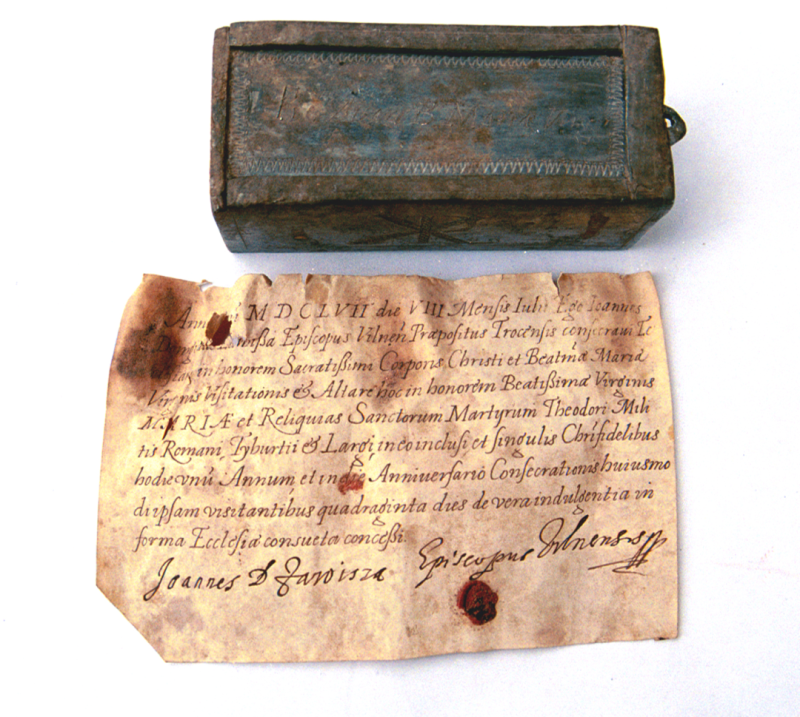 MDCLVII die VIII Mensis Iulij Ego Ioannes
Episcopus Vilneñ Præpositus Trocensis consecraui
in honorem Sacratissimi Corporis Christi et Beatmæ Mariæ
Virginis Visitationis & Altare hoc in honorem Beatissimæ Virginis
MARIÆ et Reliquias Sanctorum Martyrum Theodori Mili
tis Romani, Tyburtii & Largi in eo inclusi et singulis Chrifidelibus
hodie vnũ Annum et in die Anniuersario Consecrationis huiusmo
di ipsam visitantibus quadraginta dies de vera indulgentia in
forma Ecclesiæ consueta concessi.
Joannes D Zawisza Episcopus Vilnensis